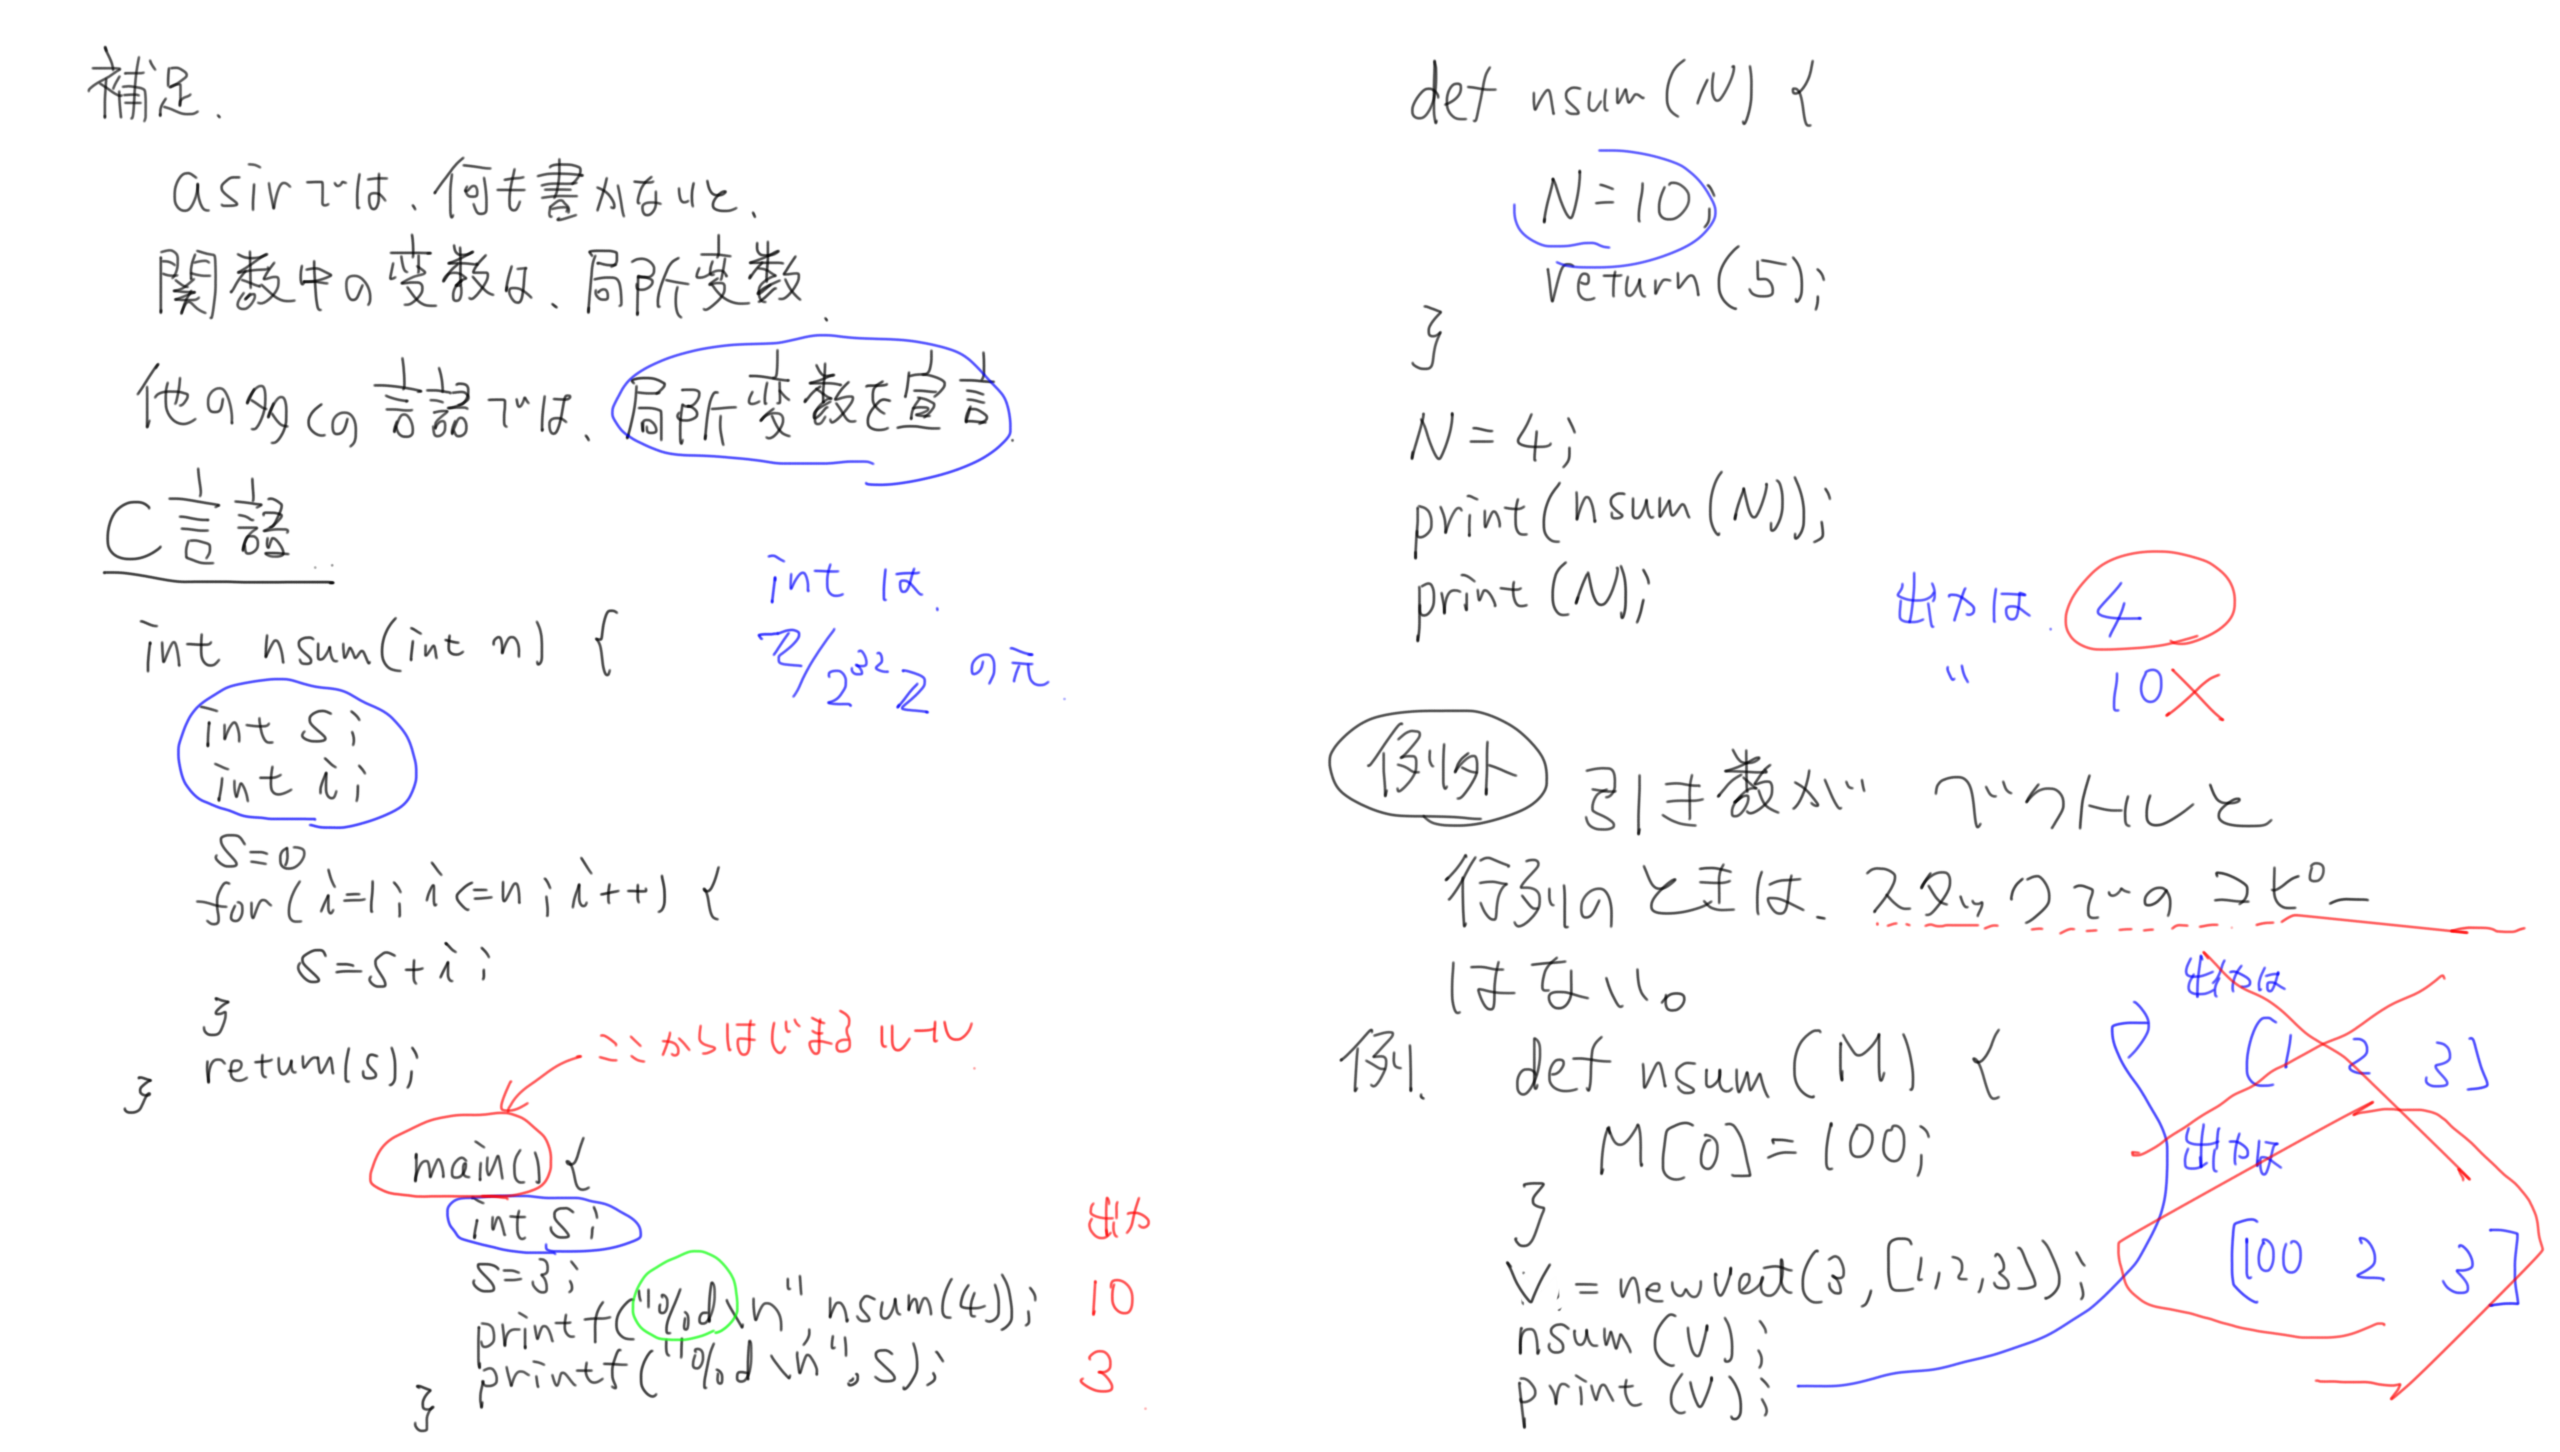 補足.
asirでは、何も書かないと、
関数中の変数は、局所変数.
他の多くの言語では、局所変数を宣言.
C言語
int nsum(int n) {
int s;
int i;
s=0
for(i=1; i<=n; i++) {
s=s+i;
}
return(s);
}
int は.
Z/2^32Z の元.
ここからはじまるルール.
main() {
int s;
s=3;
printf("%d\n", nsum(4));
printf("%d\n", s);
}
出力
10
3
def nsum(N) {
N=10;
return(5);
}
N=4;
print(nsum(N));
print(N);
出力は. 4
〃 10×
例外 引き数が ベクトルと
行列のときは. スタックでのコピー
はない。
例. def nsum(M) {
M[0]=100;
}
V=newvect(3,[1,2,3]);
nsum(V);
print(V);
出力は
[1 2 3]
出力は
[100 2 3]